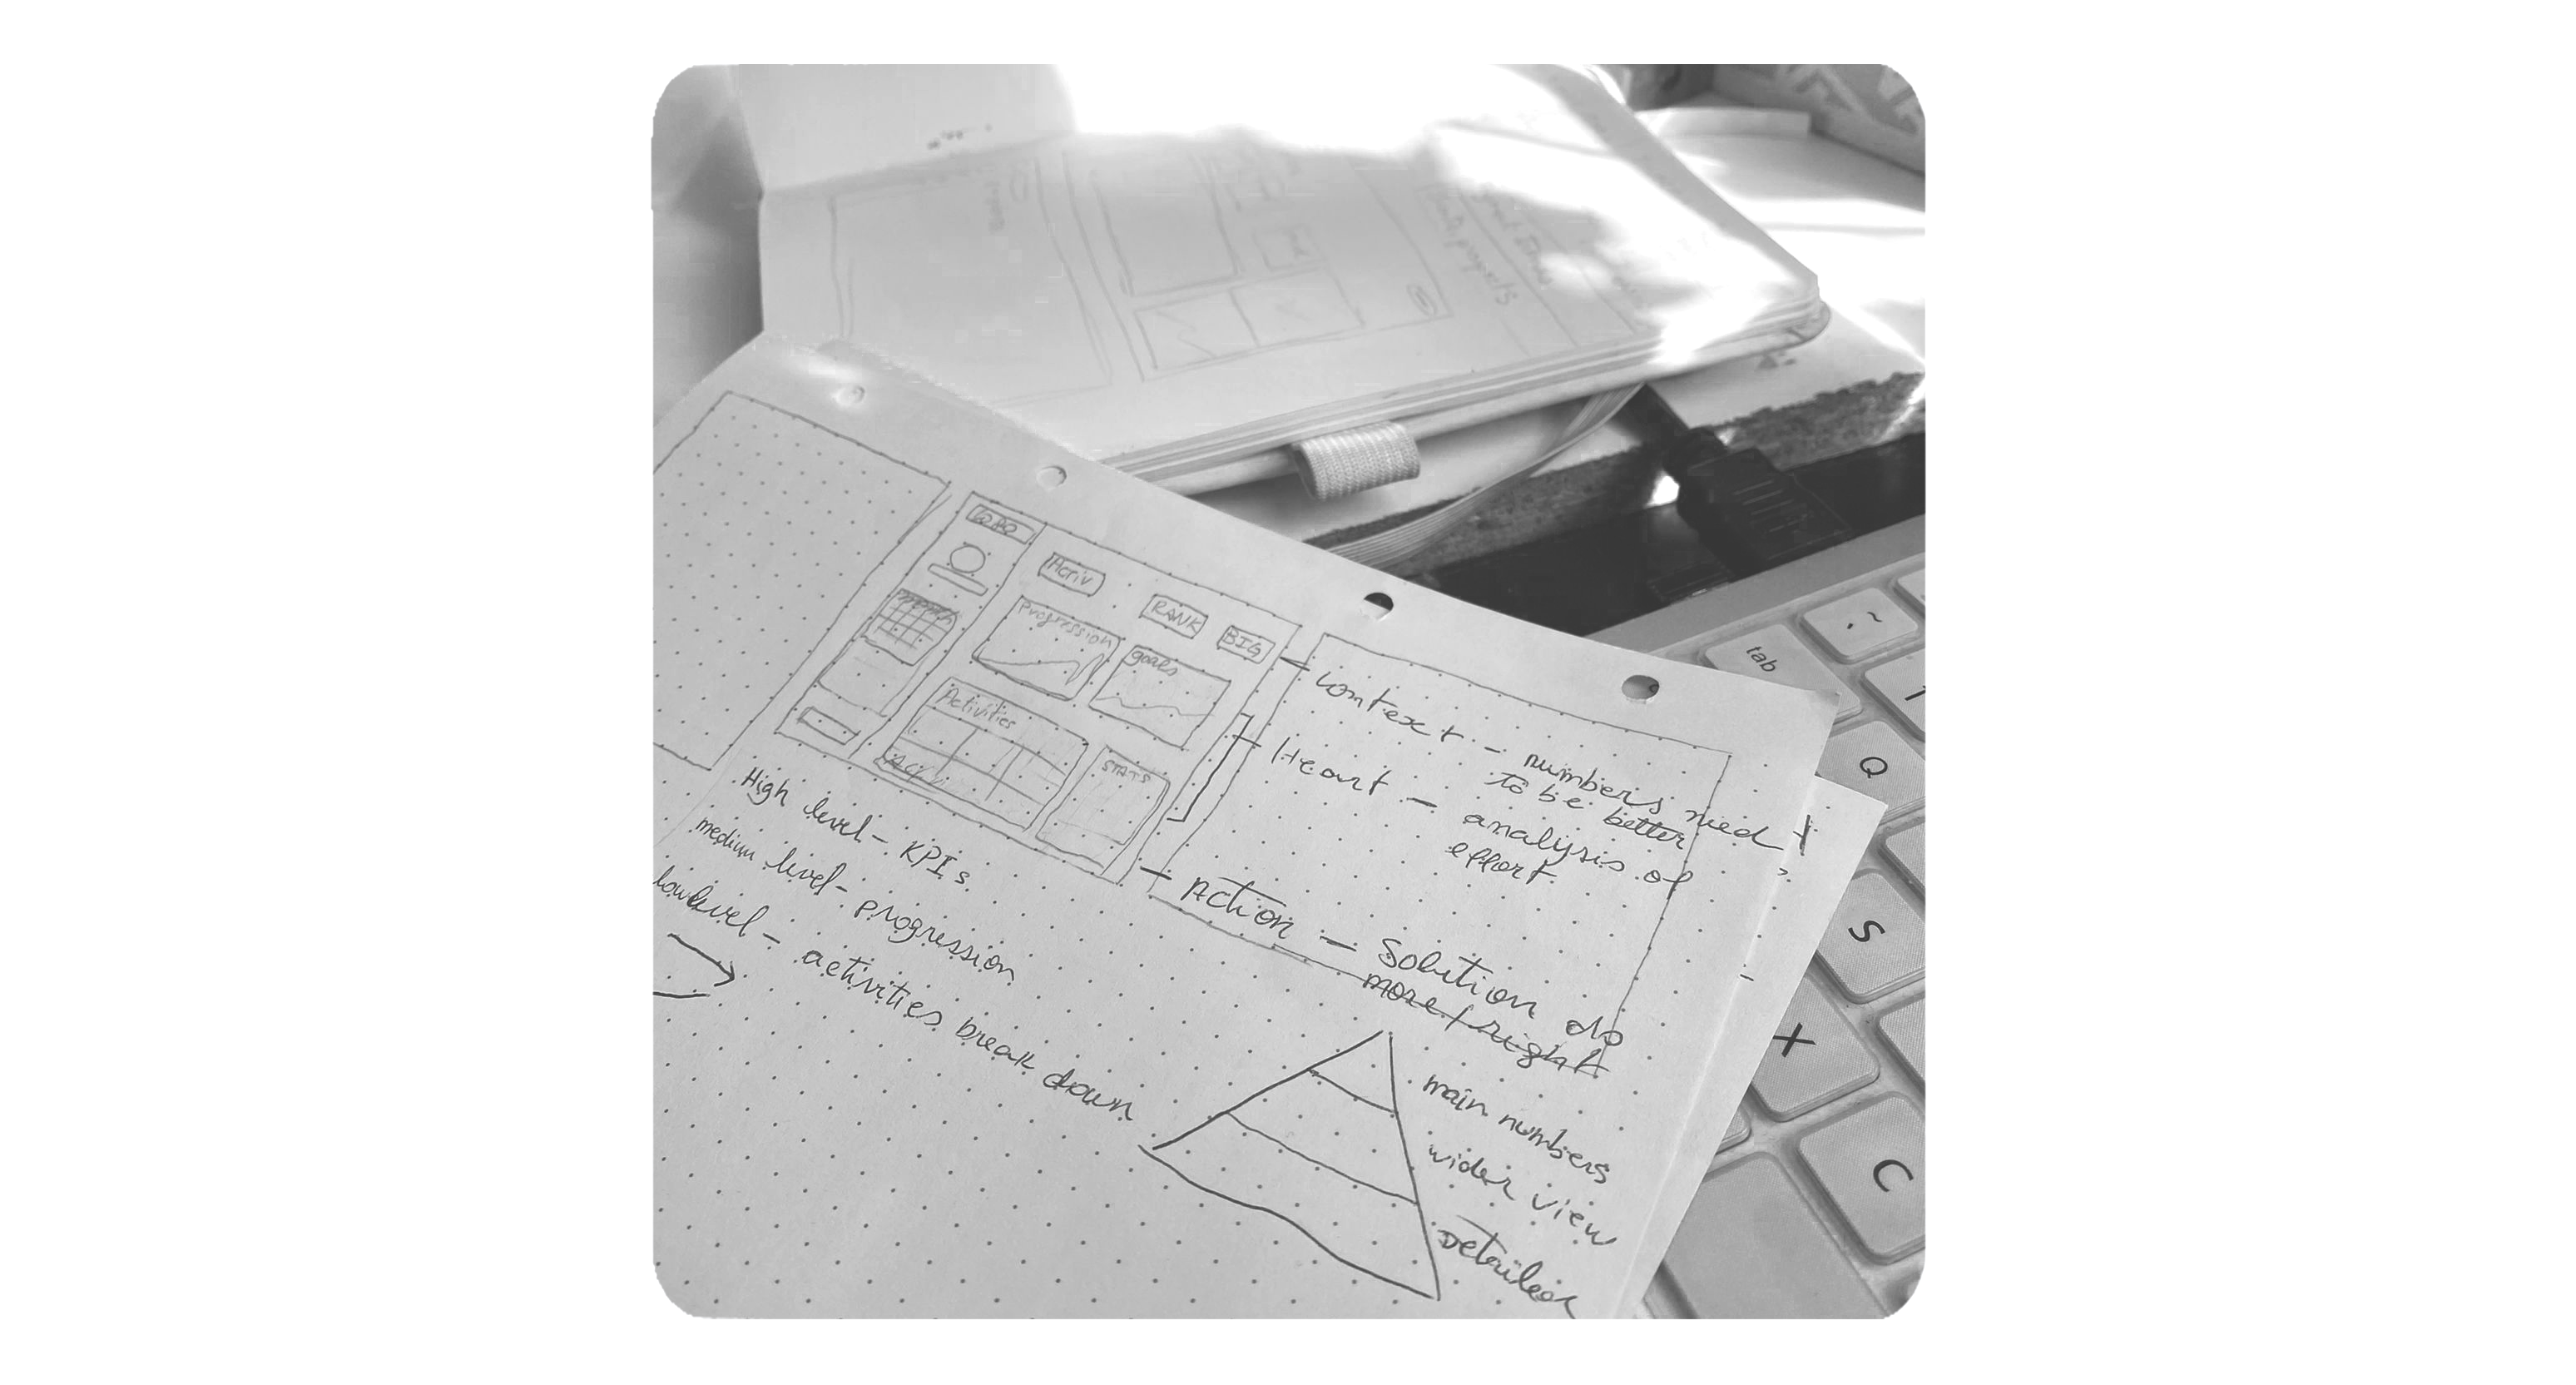 LOGO
Activ
RANK
BIG
month
Progression
goals
Activities
STATS
context - numbers need
to be better
Heart - analysis of
effort
Action - Solution do
more / right
High level - KPIs
medium level - progression
low level - activities break down
main numbers
wider view
Detailed
tab
~
Q
S
X
C